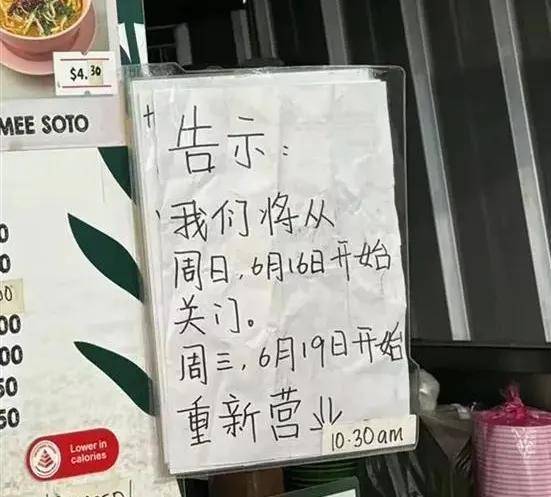 $4.30
MEE SOTO
告示：
我们将从
周日，6月16日开始
关门。
周三，6月19日开始
重新营业
10.30am
Lower in
calories